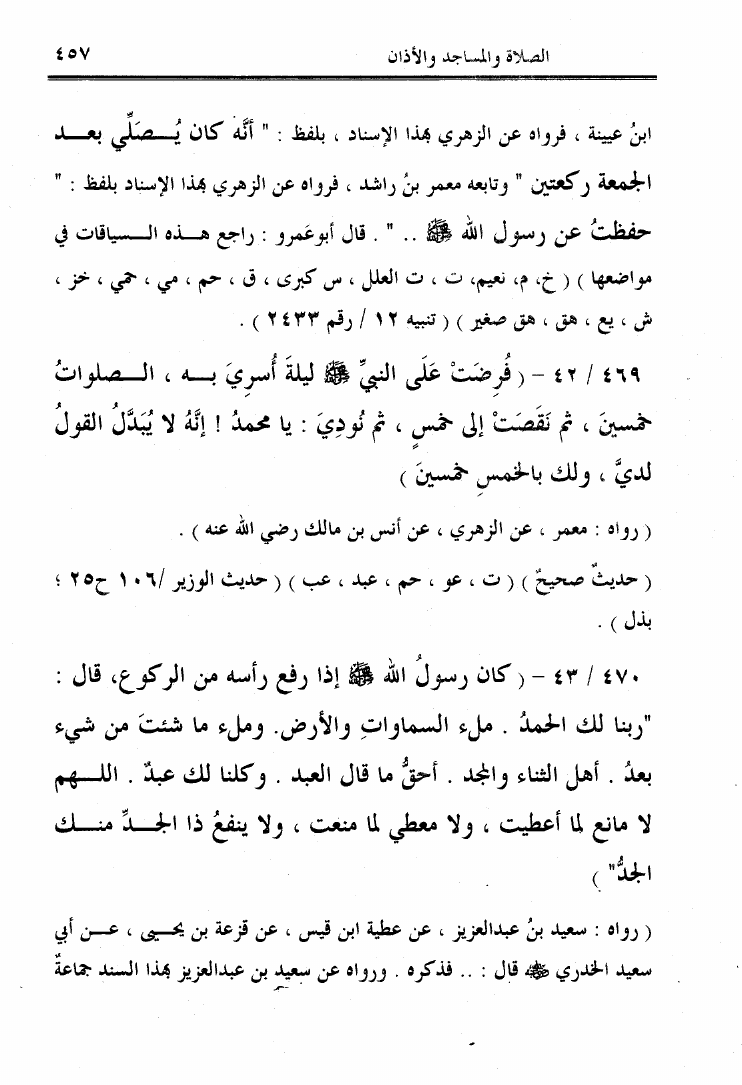 الصلاة والمساجد والأذان ٤٥٧
ابنُ عيينة ، فرواه عن الزهري بهذا الإسناد ، بلفظ : " أنَّه كان يُـصَلِّي بعـد
الجمعة ركعتين " وتابعه معمر بنُ راشد ، فرواه عن الزهري بهذا الإسناد بلفظ : "
حفظتُ عن رسول الله ﷺ .. " . قال أبوعَمرو : راجع هـذه الـسياقات في
مواضعها ) ( خ، م، نعيم، ت ، ت العلل ، س كبرى ، ق ، حم ، مي ، حمي ، خز ،
ش ، يع ، هق ، هق صغير ) ( تنبيه ١٢ / رقم ٢٤٣٣ ) .
٤٦٩ / ٤٢ – ( فُرِضَتْ عَلَى النبيِّ ﷺ ليلةَ أُسرِيَ بـه ، الـصلواتُ
خمسينَ ، ثم نَقَصَتْ إلى خمسٍ ، ثم نُودِيَ : يا محمدُ ! إنَّهُ لا يُبَدَّلُ القولُ
لديَّ ، ولك بالخمسِ خمسينَ )
( رواه : معمر ، عن الزهري ، عن أنس بن مالك رضي الله عنه ) .
( حديثٌ صحيحٌ ) ( ت ، عو ، حم ، عبد ، عب ) ( حديث الوزير /١٠٦ ح٢٥ ؛
بذل ) .
٤٧٠ / ٤٣ – ( كان رسولُ الله ﷺ إذا رفع رأسه من الركوع، قال :
"ربنا لك الحمدُ . ملء السماواتِ والأرض. وملء ما شئتَ من شيء
بعدُ . أهل الثناء والمجد . أحقُّ ما قال العبد . وكلنا لك عبدٌ . اللـهم
لا مانع لما أعطيت ، ولا معطي لما منعت ، ولا ينفعُ ذا الجـدِّ منـك
الجدُّ" )
( رواه : سعيد بنُ عبدالعزيز ، عن عطية ابن قيس ، عن قزعة بن يحـيى ، عـن أبي
سعيد الخدري ﷺ قال : .. فذكره . ورواه عن سعيد بن عبدالعزيز بهذا السند جماعةٌ